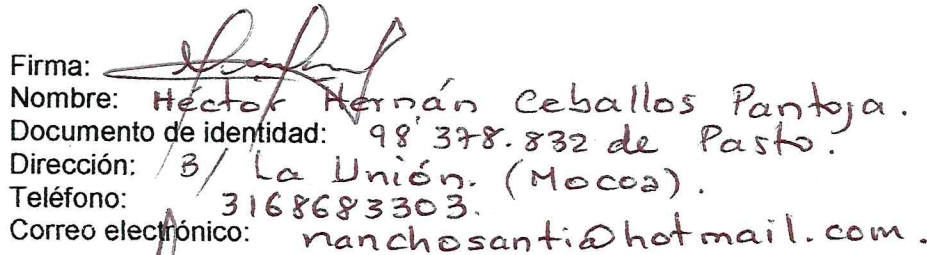 Firma:
Nombre: Héctor Hernán Ceballos Pantoja.
Documento de identidad: 98'378.832 de Pasto.
Dirección: B/ La Unión. (Mocoa).
Teléfono: 3168683303.
Correo electrónico: nanchosanti@hotmail.com.